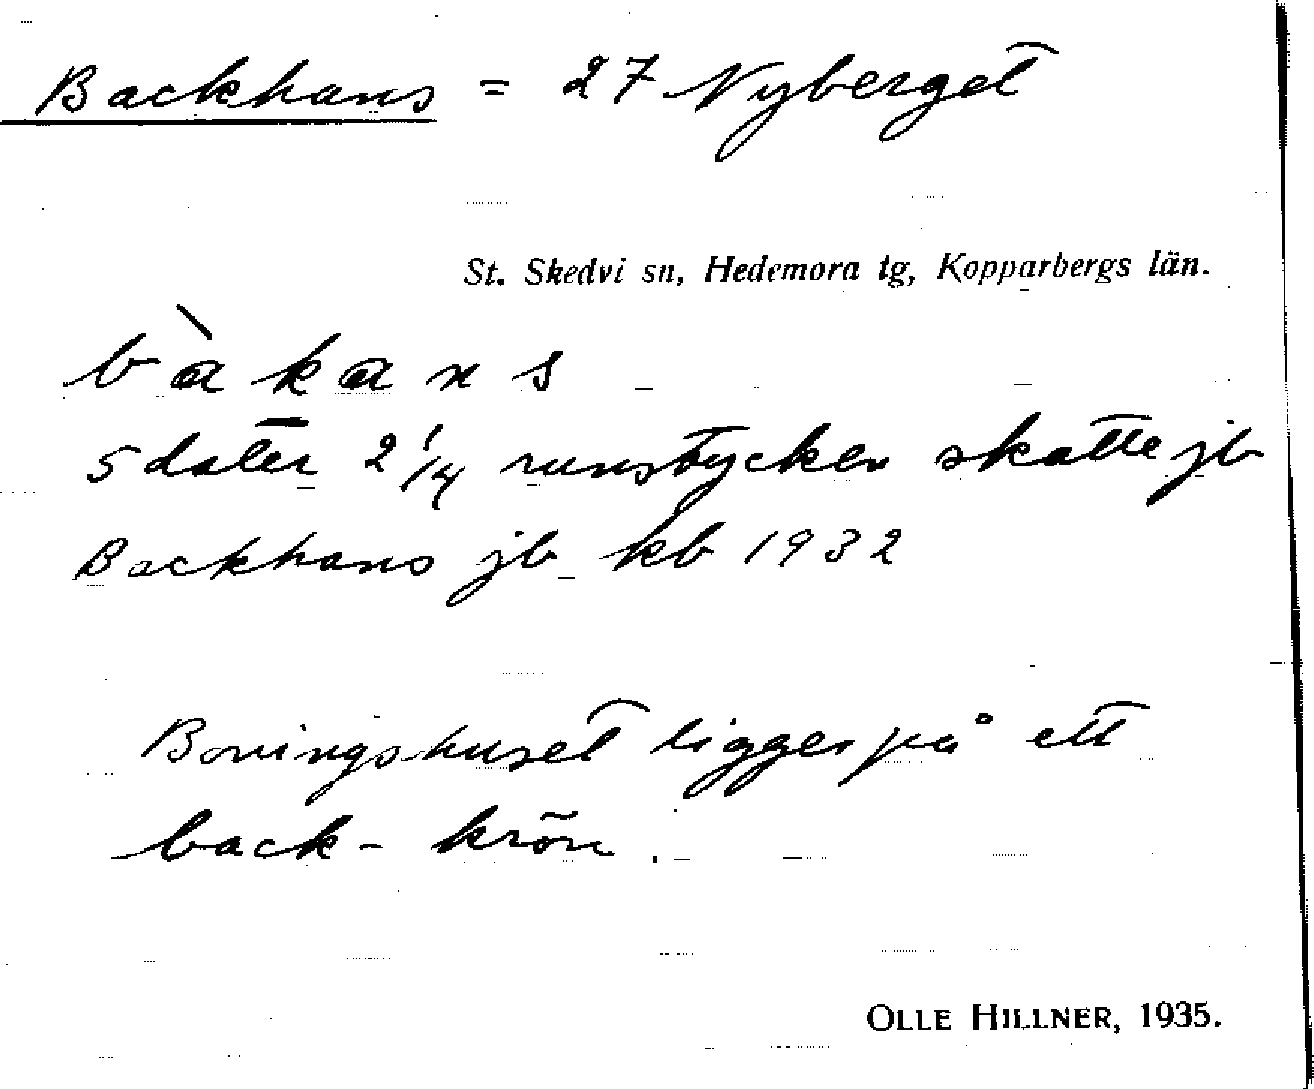 Backhans = 27 Nyberget
St. Skedvi sn, Hedemora tg, Kopparbergs län.
bàkans
5 daler 2 1/4 runstycken skatte jb
Backhans jb kb 1932
Boningshuset ligger på ett
back-krön.
OLLE HILLNER, 1935.